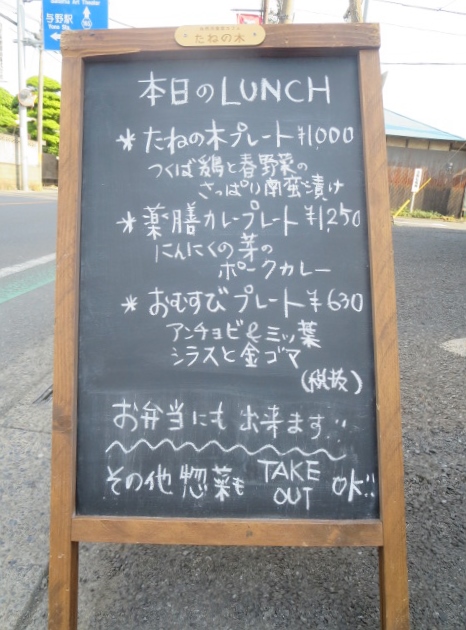 与野駅
Yono Sta.
たねの木
本日のLUNCH
*たねの木プレート ¥1,000
つくば鶏と春野菜の
さっぱり南蛮漬け
*薬膳カレープレート ¥1,250
にんにくの芽の
ポークカレー
*おむすびプレート ¥630
アンチョビ&ミツ葉
シラスと金ゴマ
(税抜)
お弁当にも出来ます‥
その他惣菜も TAKE OUT OK!!